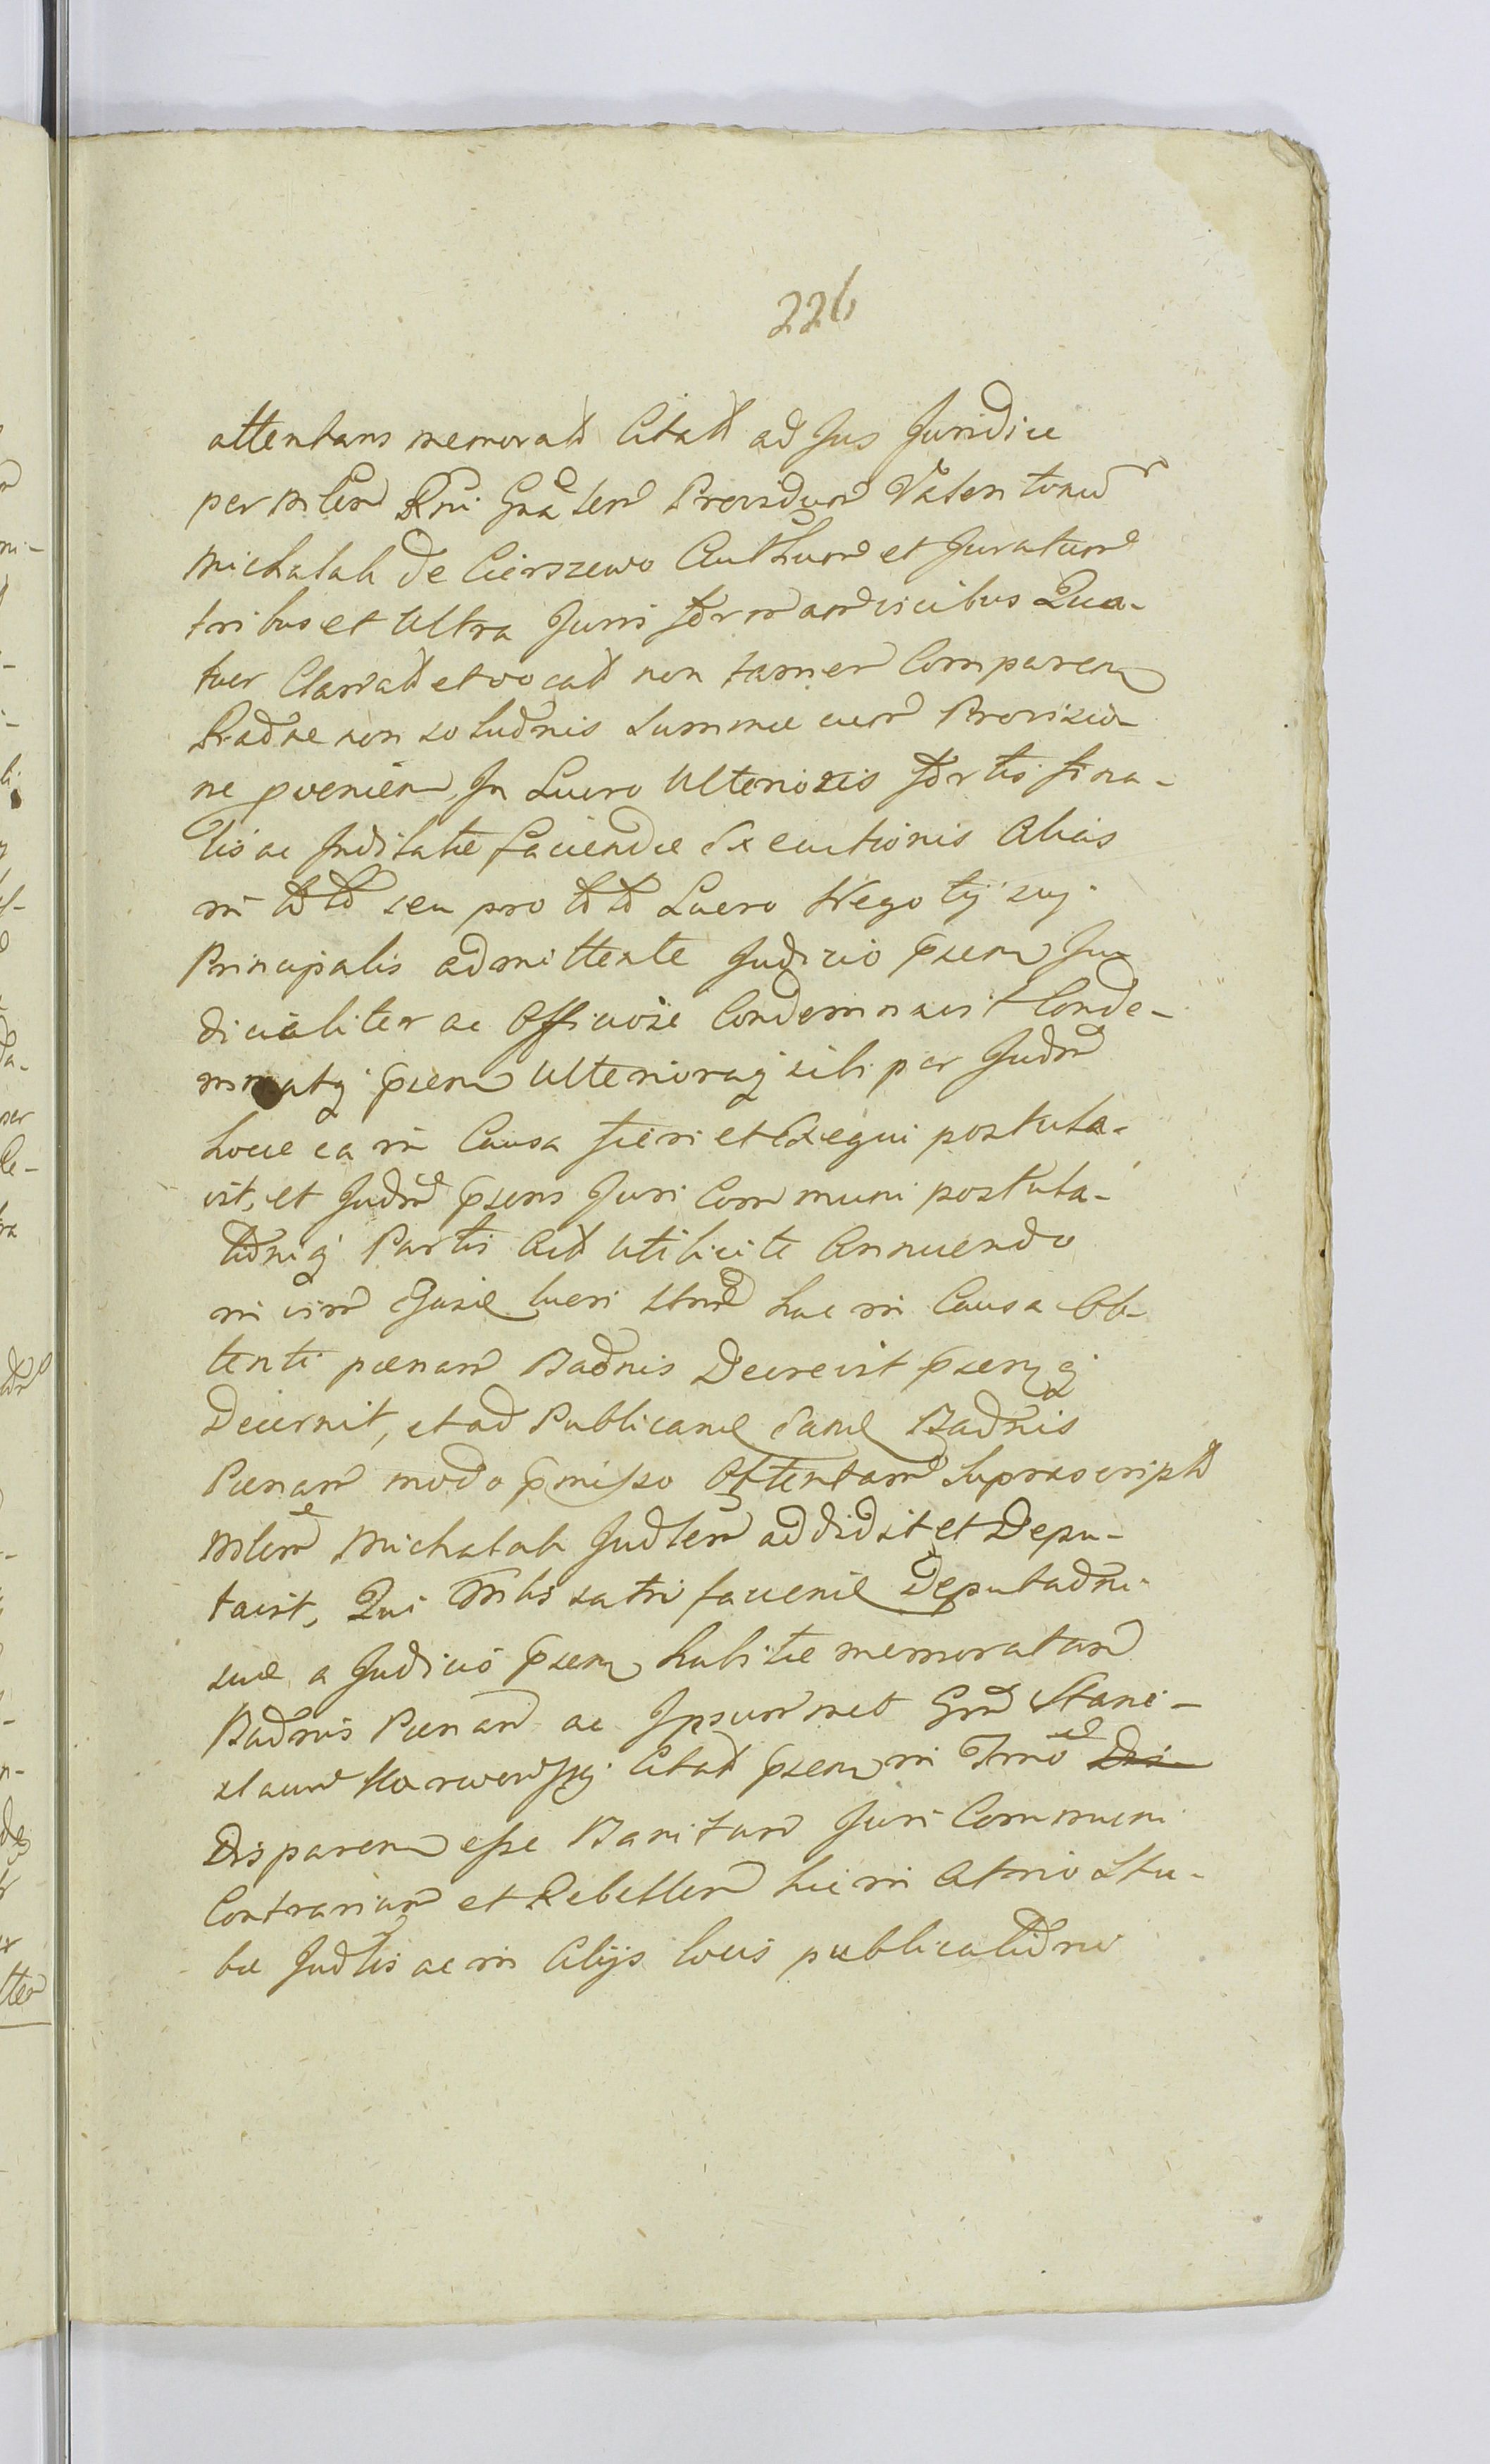 226
attentans memoratt Citatt ad Jus Juridice
per Mlem Rni Gnalem Providum Valentinum
Michalak de Cierszewo Authum et Juratum
tribus et Ultra Juris formam vicibus Qua-
tuor Clamatt et vocatt non tamen Comparen
Radne non soludnis Summae cum Provisio-
ne pvenien, In Lucro Ulterioris fortis fina-
lis ac Inditatae faciendae Executionis Alias
in tt tt seu pro tt tt Lucro Negotij suj
Principalis admittente Judicio psen Ju-
dicialiter ac Officiose Condemnavit Conde-
mnatq psen Ulterioraq sibi per Judm
hocce ea in Causa fieri et Exequi postula-
vit, et Judm psens Juri Communi postula-
tioniq Partis Actt Utilicite Annuendo
in vim lucri hac in Causa Ob-
tenti paenam Badnis Decrevit psenq
Decernit, et ad Publicand Eand Badnis
Paenam modo pmisso Obtentam Suprascriptt
Mlem Michalak Judlem addidit et Depu-
tavit, Qui satis faciend Deputadni
suae a Judicio psen habitae memoratam
Badnis Paenam ac Ipsummet Gnm Stani-
slaum Citatt psen in Trno
Disparen esse Banitum Juri Communi
Contrarium et Rebellem hic in Atrio Stu-
bae Judlis ac in Alijs locis publicatidne